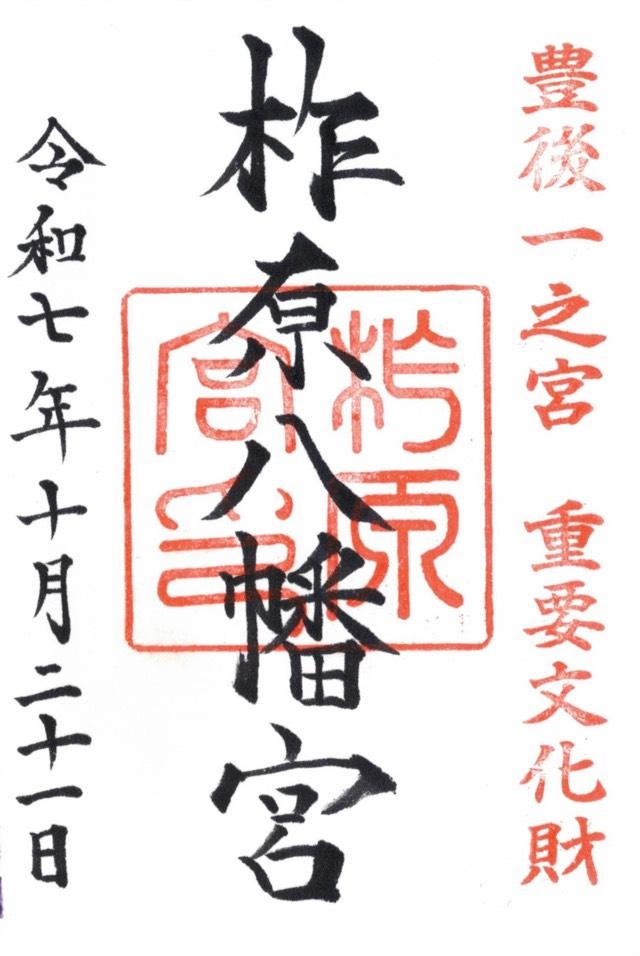 豊後一之宮 重要文化財
柞原八幡宮
柞原宮印
令和七年十月二十一日